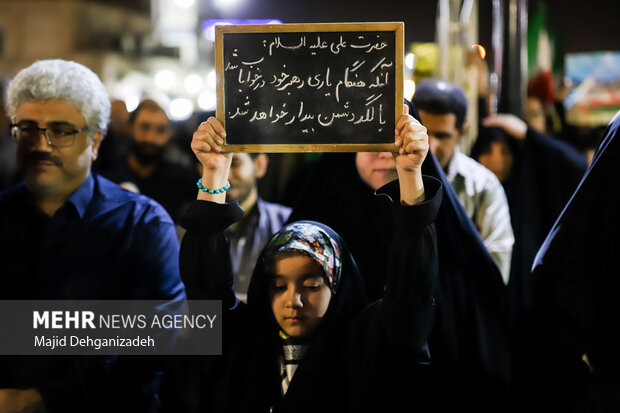 حضرت علی علیه السلام :
آنکه هنگام یاری رهبر خود در خواب باشد
با لگد دشمن بیدار خواهد شد.
MEHR NEWS AGENCY
Majid Dehganizadeh